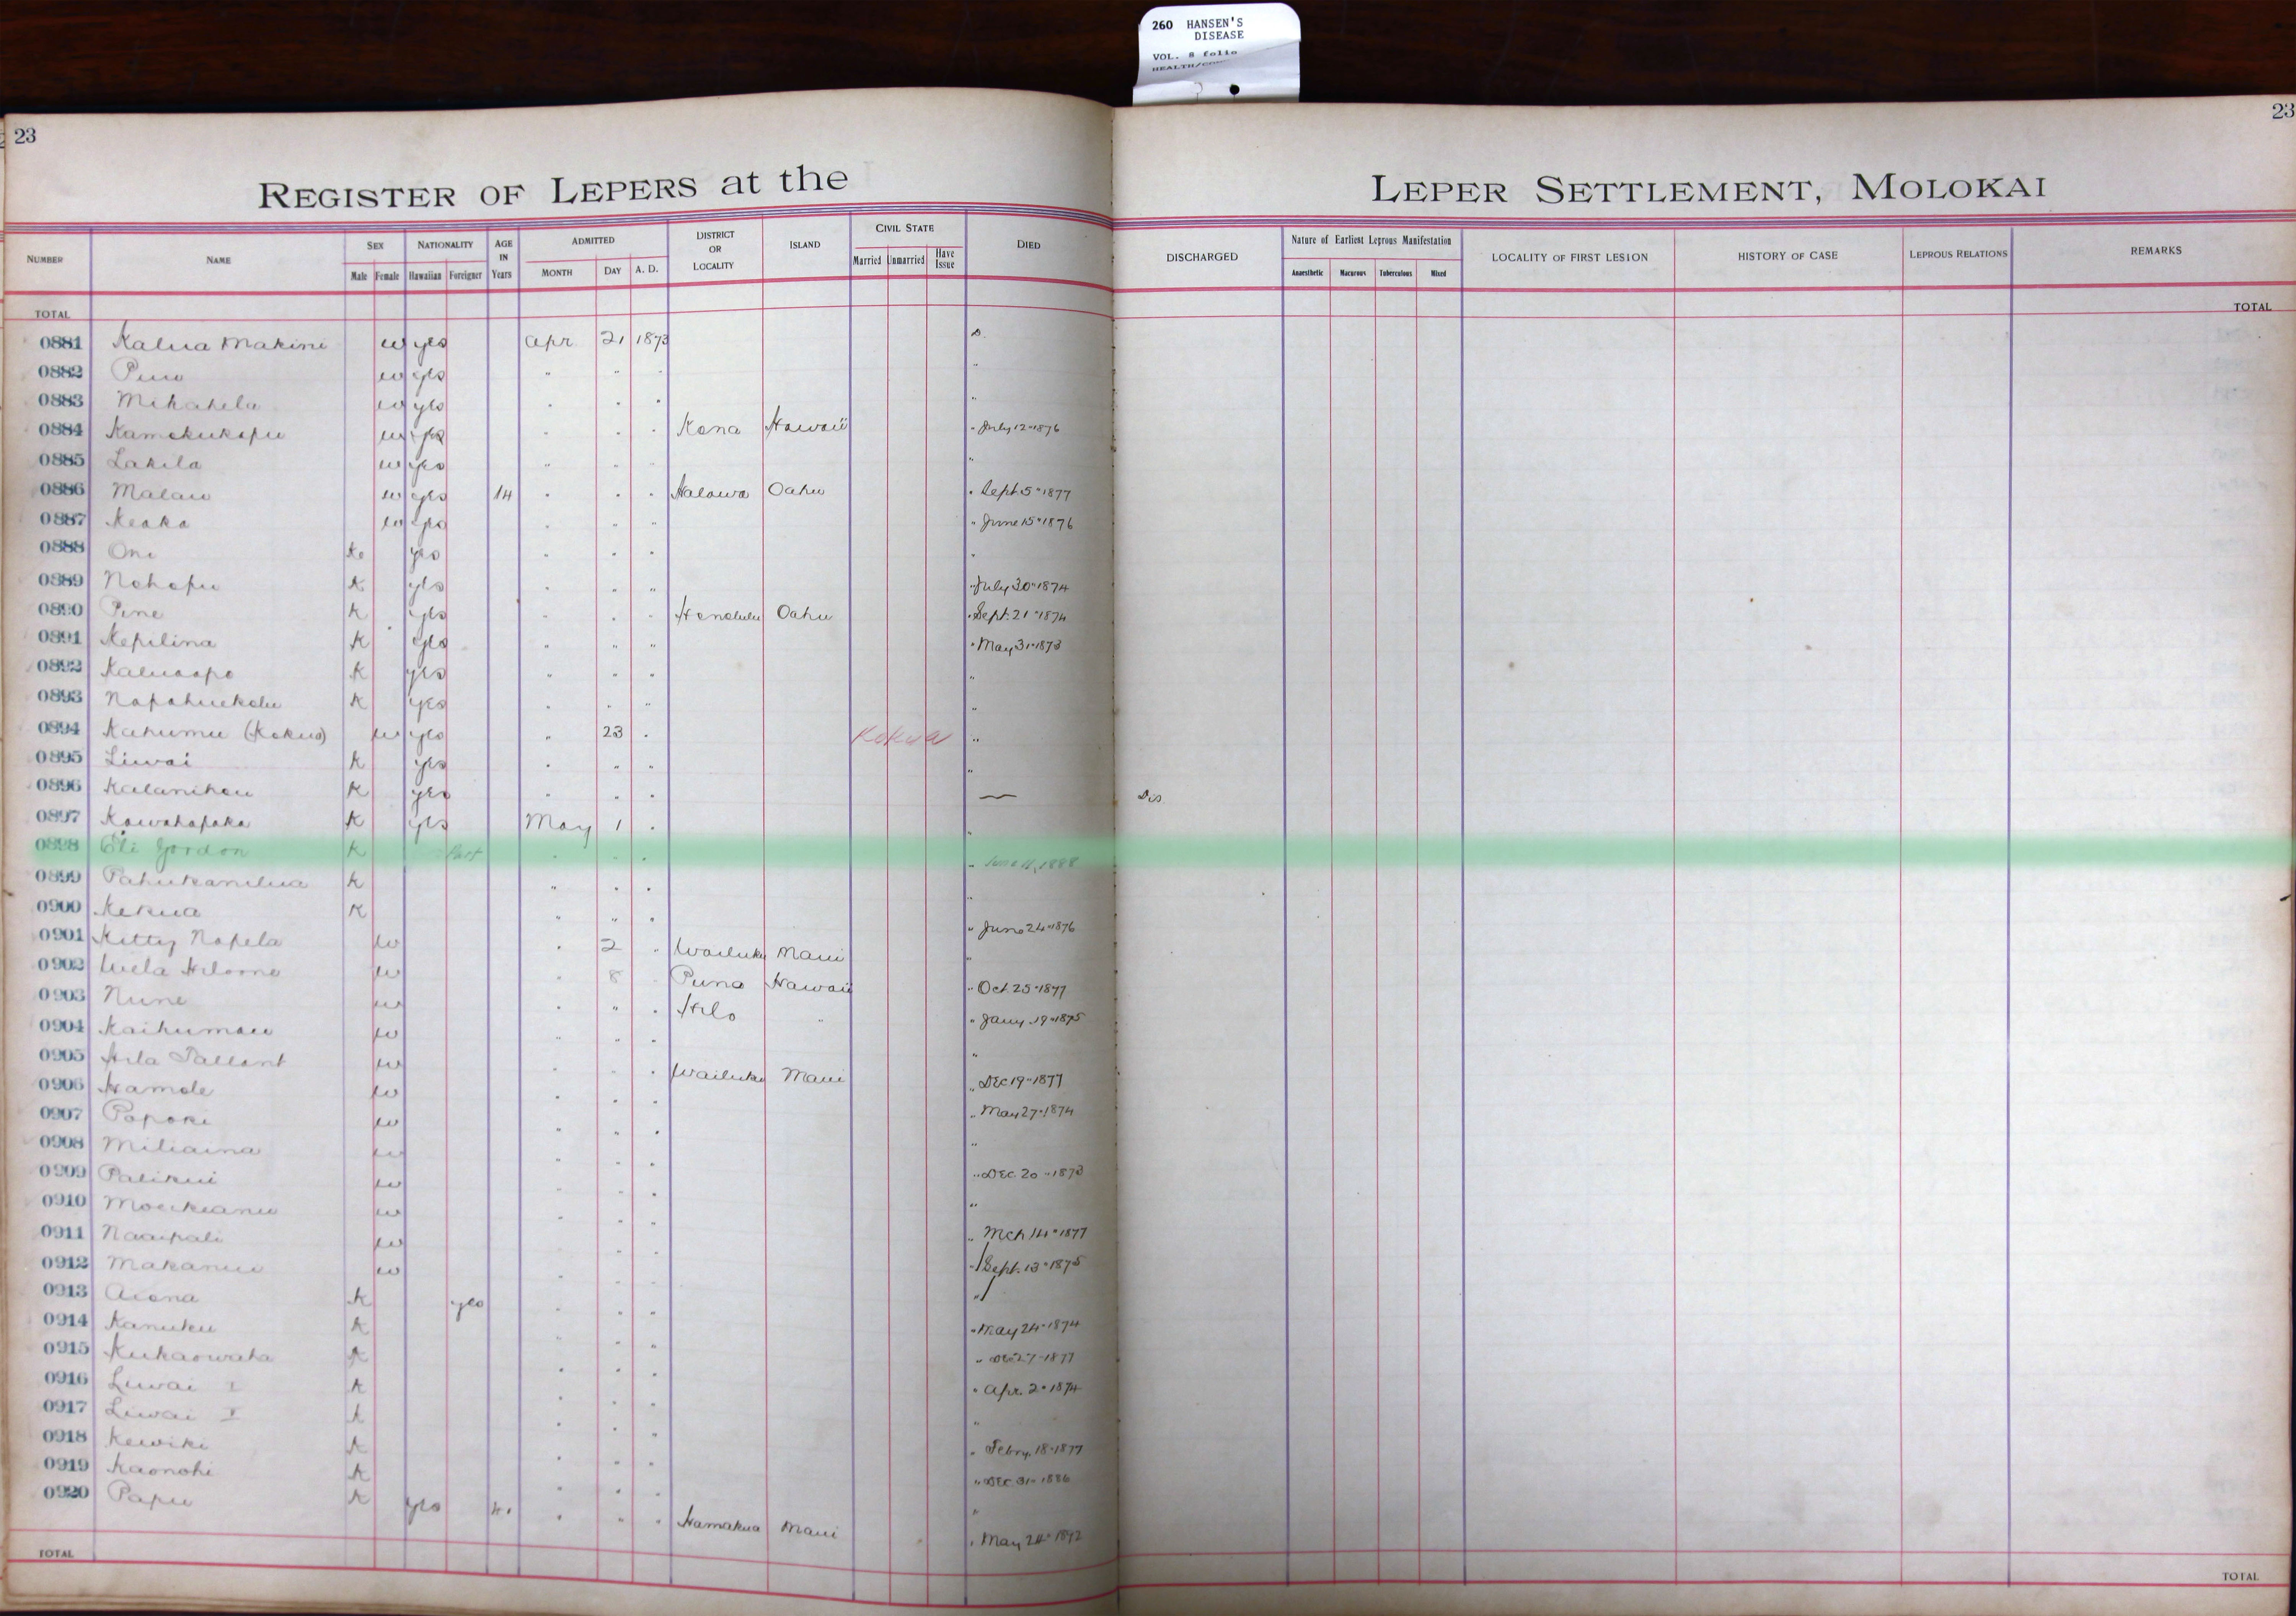 260 HANSEN'S
DISEASE
VOL. 8 folio
23
23
REGISTER OF LEPERS at the LEPER SETTLEMENT, MOLOKAI
NUMBER NAME SEX NATIONALITY AGE IN Years ADMITTED DISTRICT OR LOCALITY ISLAND CIVIL STATE DIED DISCHARGED Nature of Earliest Leprous Manifestation LOCALITY OF FIRST LESION HISTORY OF CASE LEPROUS RELATIONS REMARKS
Male Female Hawaiian Foreigner MONTH DAY A. D. Married Unmarried Have Issue Anaesthetic Macurous Tuberculous Mixed
TOTAL TOTAL
0881 Kalua Makini w yes Apr 21 1873 D.
0882 w yes " " " "
0883 Mikahela w yes " " " "
0884 Kamokukapu w yes " " " Kona Hawaii " July 12" 1876
0885 Lakila w yes " " " "
0886 Malau w yes 14 " " " Halawa Oahu " Sept. 5" 1877
0887 Keaka w yes " " " " June 15" 1876
0888 Oni K. yes " " " "
0889 Nohopu K yes " " " " July 30" 1874
0890 Pine K yes " " " Honolulu Oahu " Sept. 21" 1874
0891 Kepilina K yes " " " " May 31" 1873
0892 K yes " " " "
0893 Napahuekolu K yes " " " "
0894 Kahumu (Kokua) w yes " 23 " Kokua "
0895 Liwai K yes " " " "
0896 Kalanihou K yes " " " — Dis
0897 Kawahapaka K yes May 1 " "
0898 Eli Gordon K Part " " " " June 11, 1888
0899 Pahukanilua K " " " "
0900 Kekua K " " " " June 24" 1876
0901 Kitty Napela w " 2 " Wailuku Maui "
0902 w " 8 " Puna Hawaii " Oct. 25" 1877
0903 Nune w " " " Hilo " " Jany. 19" 1875
0904 Kaihumau w " " " "
0905 Hila Tallant w " " " Wailuku Maui " Dec 19" 1877
0906 Hamole w " " " " May 27" 1874
0907 Papoki w " " " "
0908 Miliaina w " " " " Dec. 20" 1873
0909 Palikui w " " " "
0910 w " " " " Mch 14" 1877
0911 Naaipali w " " " " Sept. 13" 1875
0912 Makanui w " " " "
0913 Aiona K yes " " " " May 24" 1874
0914 Kanuku K " " " " Dec 27" 1877
0915 Kukaowaha K " " " " Apr. 2" 1874
0916 Liwai I K " " " "
0917 Liwai K " " " " Febry. 18" 1877
0918 Kewiki K " " " " Dec. 31" 1886
0919 Kaonohi K " " " "
0920 Papu K yes " " " Hamakua Maui " May 24" 1892
TOTAL TOTAL